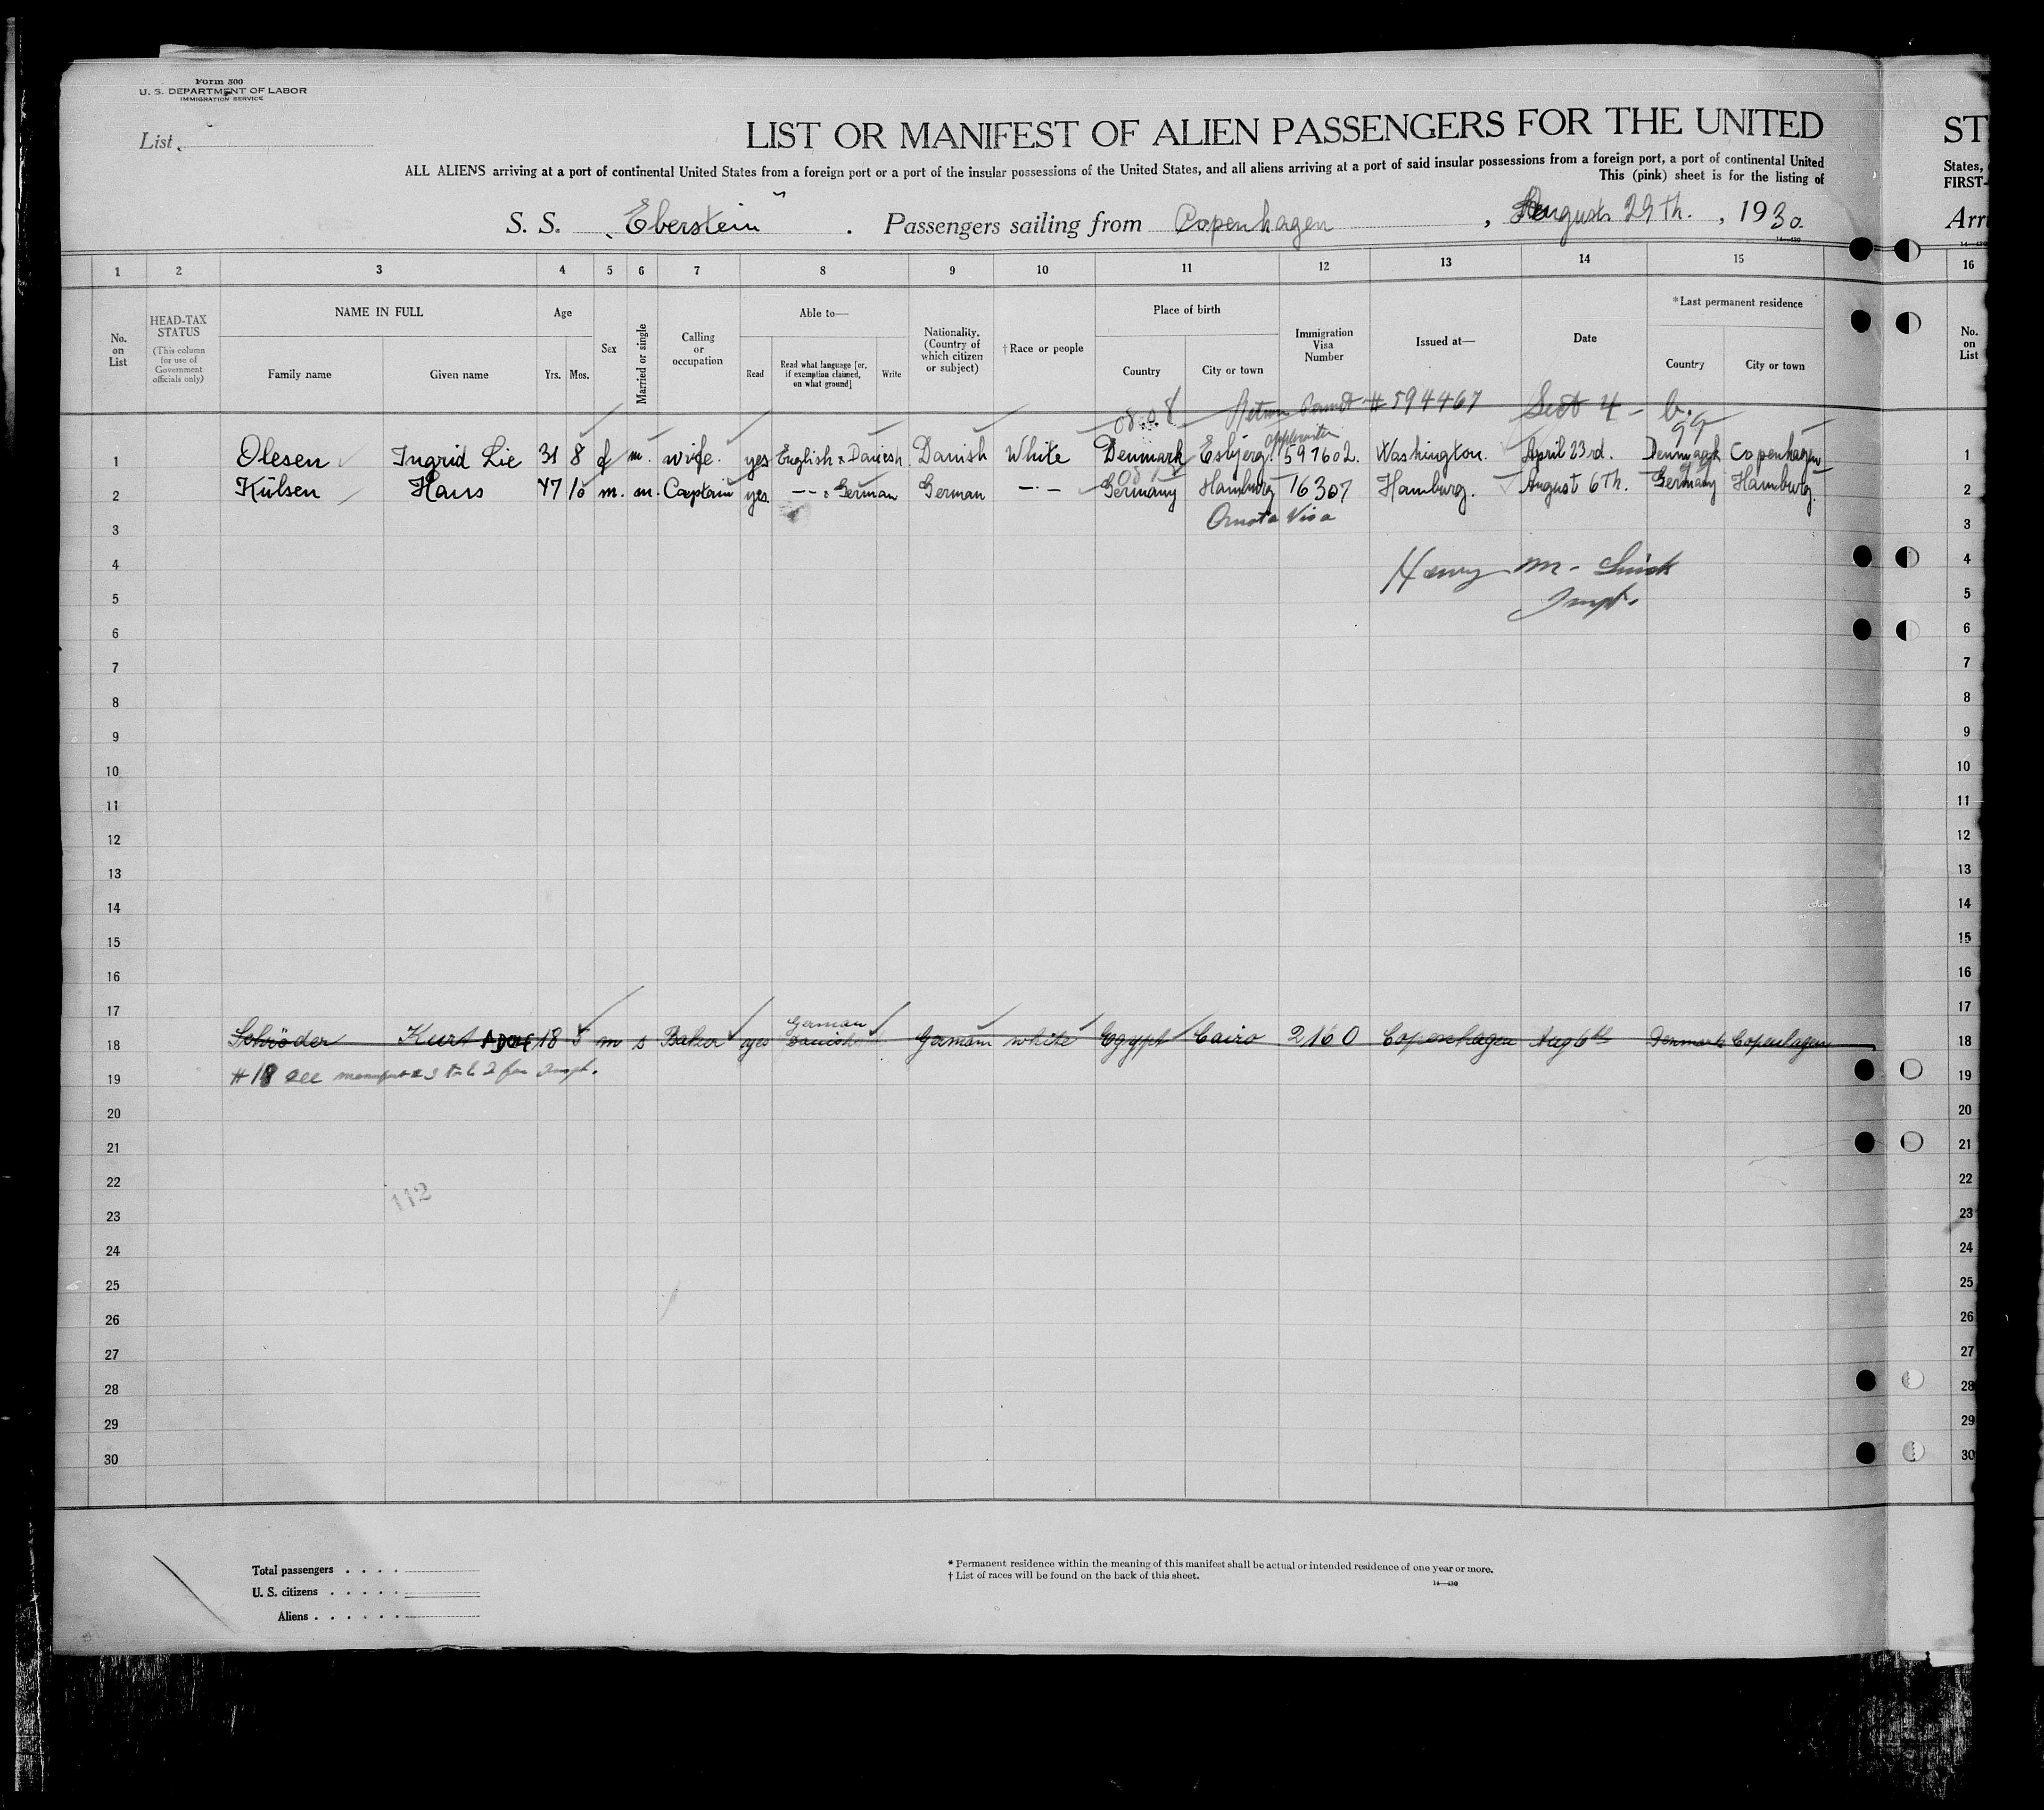 Form 500
U. S. DEPARTMENT OF LABOR
IMMIGRATION SERVICE
List
LIST OR MANIFEST OF ALIEN PASSENGERS FOR THE UNITED
ST
ALL ALIENS arriving at a port of continental United States from a foreign port or a port of the insular possessions of the United States, and all aliens arriving at a port of said insular possessions from a foreign port, a port of continental United
States,
This (pink) sheet is for the listing of
FIRST-
S. S. "Eberstein". Passengers sailing from Copenhagen, August 29th., 1930.
Arri
14—430
1 2 3 4 5 6 7 8 9 10 11 12 13 14 15 16
No. on List
HEAD-TAX STATUS
(This column for use of Government officials only)
NAME IN FULL
Family name
Given name
Age
Yrs.
Mos.
Sex
Married or single
Calling or occupation
Able to—
Read
Read what language [or, if exemption claimed, on what ground]
Write
Nationality. (Country of which citizen or subject)
†Race or people
Place of birth
Country
City or town
Immigration Visa Number
Issued at—
Date
*Last permanent residence
Country
City or town
No. on List
Return Permit #594467 Sect 4 - b.
99
1 Olesen Ingrid Lie 31 8 f m. wife. yes English & Danish Danish White Denmark Esbjerg. 597602. Washington. April 23rd. Denmark Copenhagen 1
2 Külsen Hans 47 10 m. m. Captain yes. -- & German German -·- Germany Hamburg 16307 Hamburg. August 6th. Germany Hamburg. 2
3 Quota Visa 3
4 Henry M. 4
5 Inspt. 5
6 6
7 7
8 8
9 9
10 10
11 11
12 12
13 13
14 14
15 15
16 16
17 17
German
18 Schröder Kurt ADOLF 18 5 m s Baker yes Danish German white Egypt Cairo 2160 Copenhagen Aug 6th Denmark Copenhagen 18
19 #18 see manifest for Inspt. 19
20 20
21 21
22 22
112
23 23
24 24
25 25
26 26
27 27
28 28
29 29
30 30
Total passengers . . . .
U. S. citizens . . . . .
Aliens . . . . . .
* Permanent residence within the meaning of this manifest shall be actual or intended residence of one year or more.
† List of races will be found on the back of this sheet.
14—430